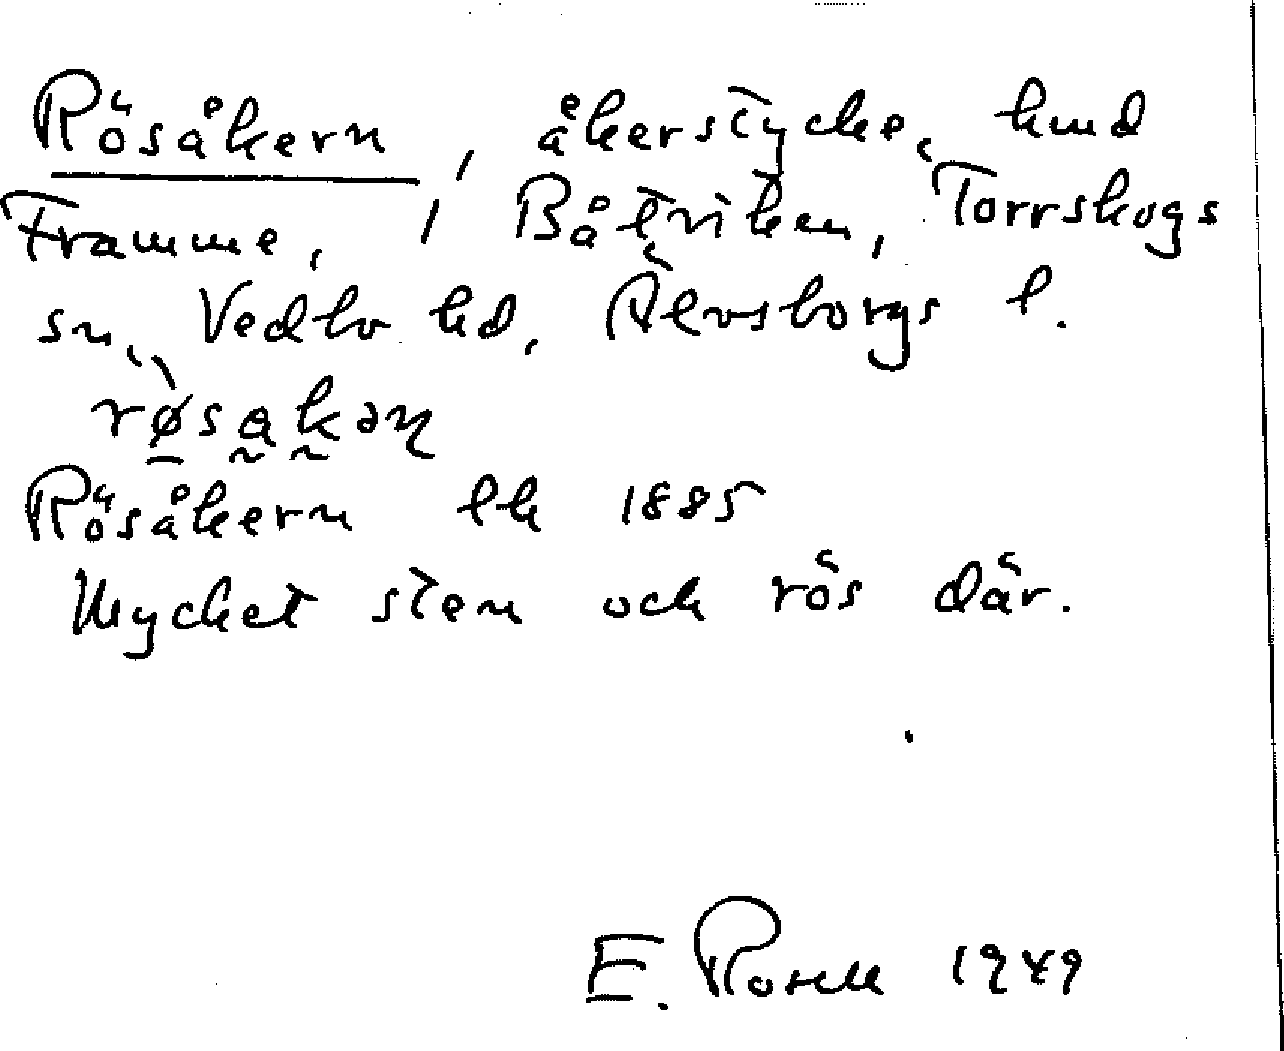 Rösåkern, åkerstycke, hmd
Framme, i Båtviken, Torrskogs
sn, Vedbo hd, Älvsborgs l.
Rösåkern lk 1885
Mycket sten och rös där.
E. Rosell 1949